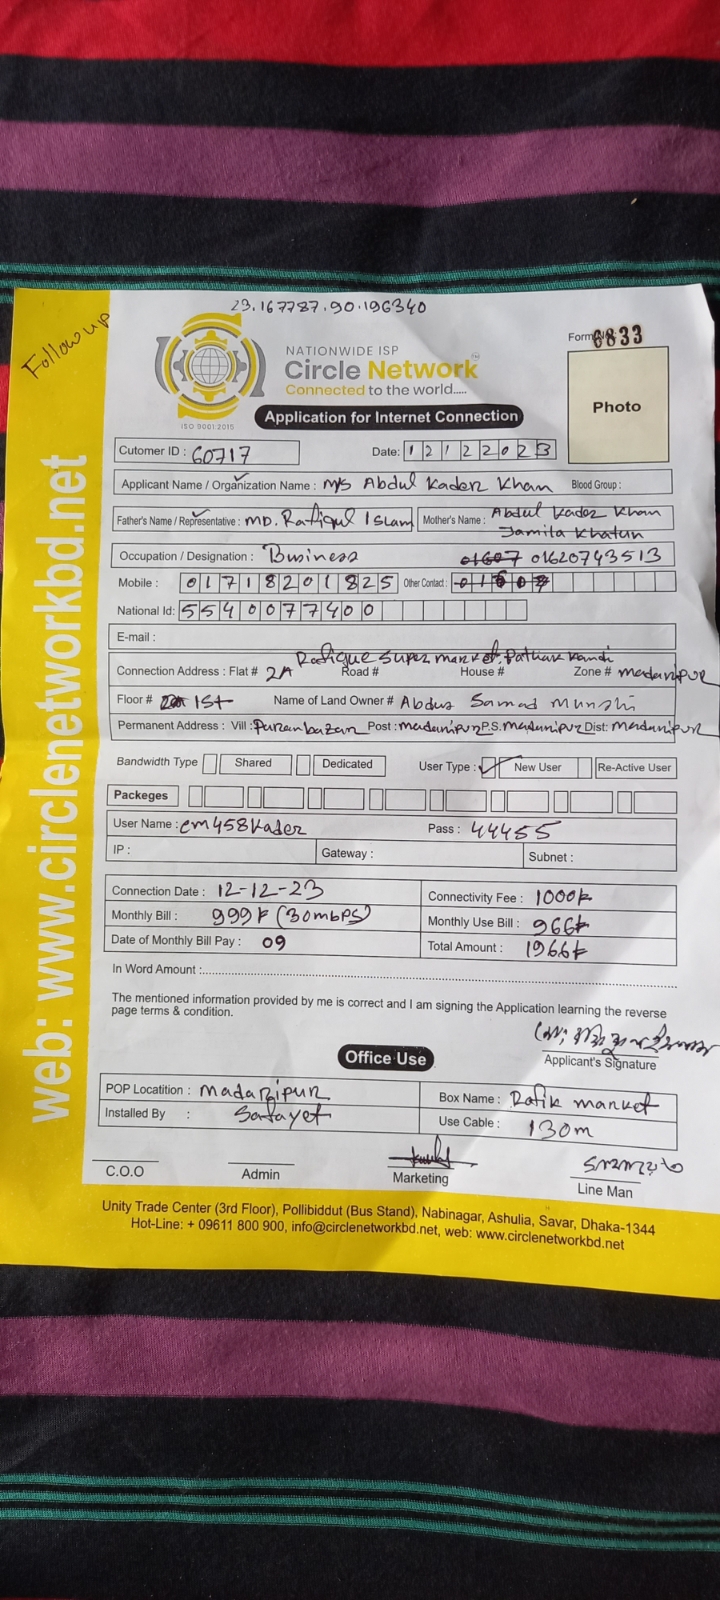 23.167787.90.196340
Follow up
Form 6833
NATIONWIDE ISP
Circle Network
Connected to the world.....
ISO 9001:2015
Photo
Application for Internet Connection
Cutomer ID : 60717 Date: 12122023
Applicant Name / Organization Name : M/S Abdul Kader Khan Blood Group :
Father's Name / Representative : MD. Rafiqul Islam Mother's Name : Abdul Kader Khan
Jamila Khatun
Occupation / Designation : Business 01620743513
Mobile : 01718201825 Other Contact :
National Id: 5540077400
E-mail :
Rafique Super market. Pathak Kandi
Connection Address : Flat # 2A Road # House # Zone # madaripur
Floor # 1st Name of Land Owner # Abdus Samad Munshi
Permanent Address : Vill : Puranbazar Post : madaripur P.S. madaripur Dist: madaripur
Bandwidth Type Shared Dedicated User Type : New User Re-Active User
Packeges
User Name : cm458kader Pass : 44455
IP : Gateway : Subnet :
Connection Date : 12-12-23 Connectivity Fee : 1000৳
Monthly Bill : 999৳ (30mbps) Monthly Use Bill : 966৳
Date of Monthly Bill Pay : 09 Total Amount : 1966৳
In Word Amount :
The mentioned information provided by me is correct and I am signing the Application learning the reverse
page terms & condition.
Applicant's Signature
Office Use
POP Locatition : Madaripur Box Name : Rafik market
Installed By : Safayet Use Cable : 130m
C.O.O Admin Marketing Line Man
Unity Trade Center (3rd Floor), Pollibiddut (Bus Stand), Nabinagar, Ashulia, Savar, Dhaka-1344
Hot-Line: + 09611 800 900, info@circlenetworkbd.net, web: www.circlenetworkbd.net
web: www.circlenetworkbd.net